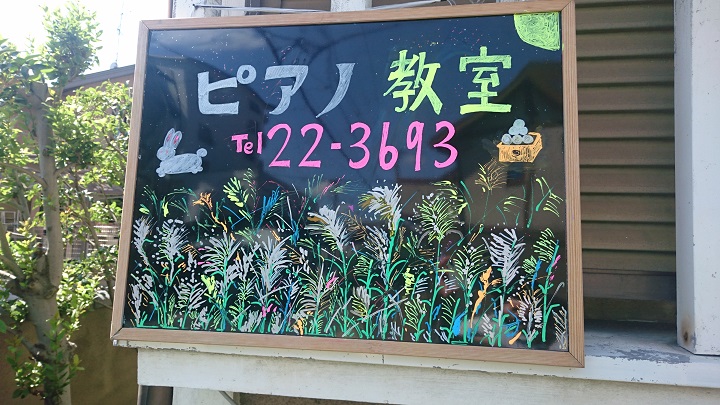 ピアノ 教室
Tel 22-3693